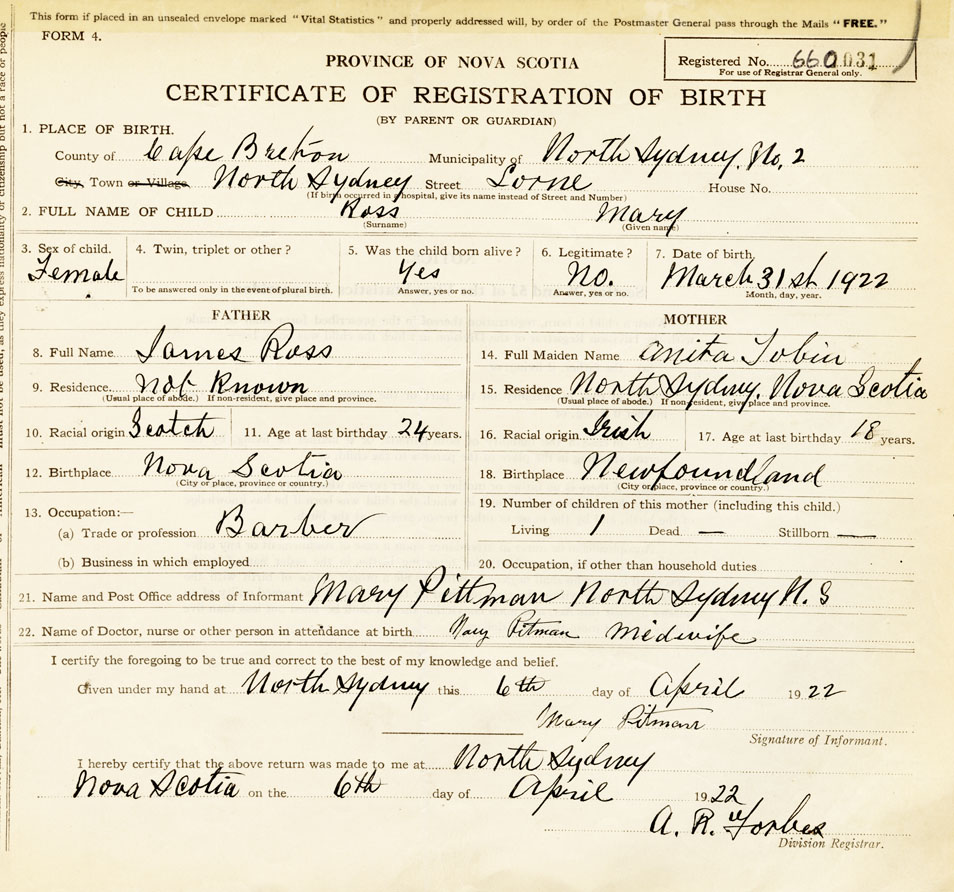 This form if placed in an unsealed envelope marked "Vital Statistics" and properly addressed will, by order of the Postmaster General pass through the Mails "FREE."
FORM 4.
Registered No. 660031
For use of Registrar General only.
PROVINCE OF NOVA SCOTIA
CERTIFICATE OF REGISTRATION OF BIRTH
(BY PARENT OR GUARDIAN)
1. PLACE OF BIRTH.
County of Cape Breton Municipality of North Sydney, No, 2
City, Town or Village North Sydney Street Lorne House No.
(If birth occurred in a hospital, give its name instead of Street and Number)
2. FULL NAME OF CHILD Ross Mary
(Surname) (Given name)
3. Sex of child. 4. Twin, triplet or other? 5. Was the child born alive? 6. Legitimate? 7. Date of birth.
Female Yes No. March 31st 1922
To be answered only in the event of plural birth. Answer, yes or no. Answer, yes or no. Month, day, year.
FATHER
8. Full Name James Ross
9. Residence Not Known
(Usual place of abode.) If non-resident, give place and province.
10. Racial origin Scotch 11. Age at last birthday 24 years.
12. Birthplace Nova Scotia
(City or place, province or country.)
13. Occupation:—
(a) Trade or profession Barber
(b) Business in which employed
MOTHER
14. Full Maiden Name Anita Tobin
15. Residence North Sydney, Nova Scotia
(Usual place of abode.) If non-resident, give place and province.
16. Racial origin Irish 17. Age at last birthday 18 years.
18. Birthplace Newfoundland
(City or place, province or country.)
19. Number of children of this mother (including this child.)
Living 1 Dead — Stillborn —
20. Occupation, if other than household duties
21. Name and Post Office address of Informant Mary Pittman North Sydney N.S
22. Name of Doctor, nurse or other person in attendance at birth Mary Pitman Midwife
I certify the foregoing to be true and correct to the best of my knowledge and belief.
Given under my hand at North Sydney this 6th day of April 1922
Mary Pitman
Signature of Informant.
I hereby certify that the above return was made to me at North Sydney
Nova Scotia on the 6th day of April 1922
A. R. Forbes
Division Registrar.